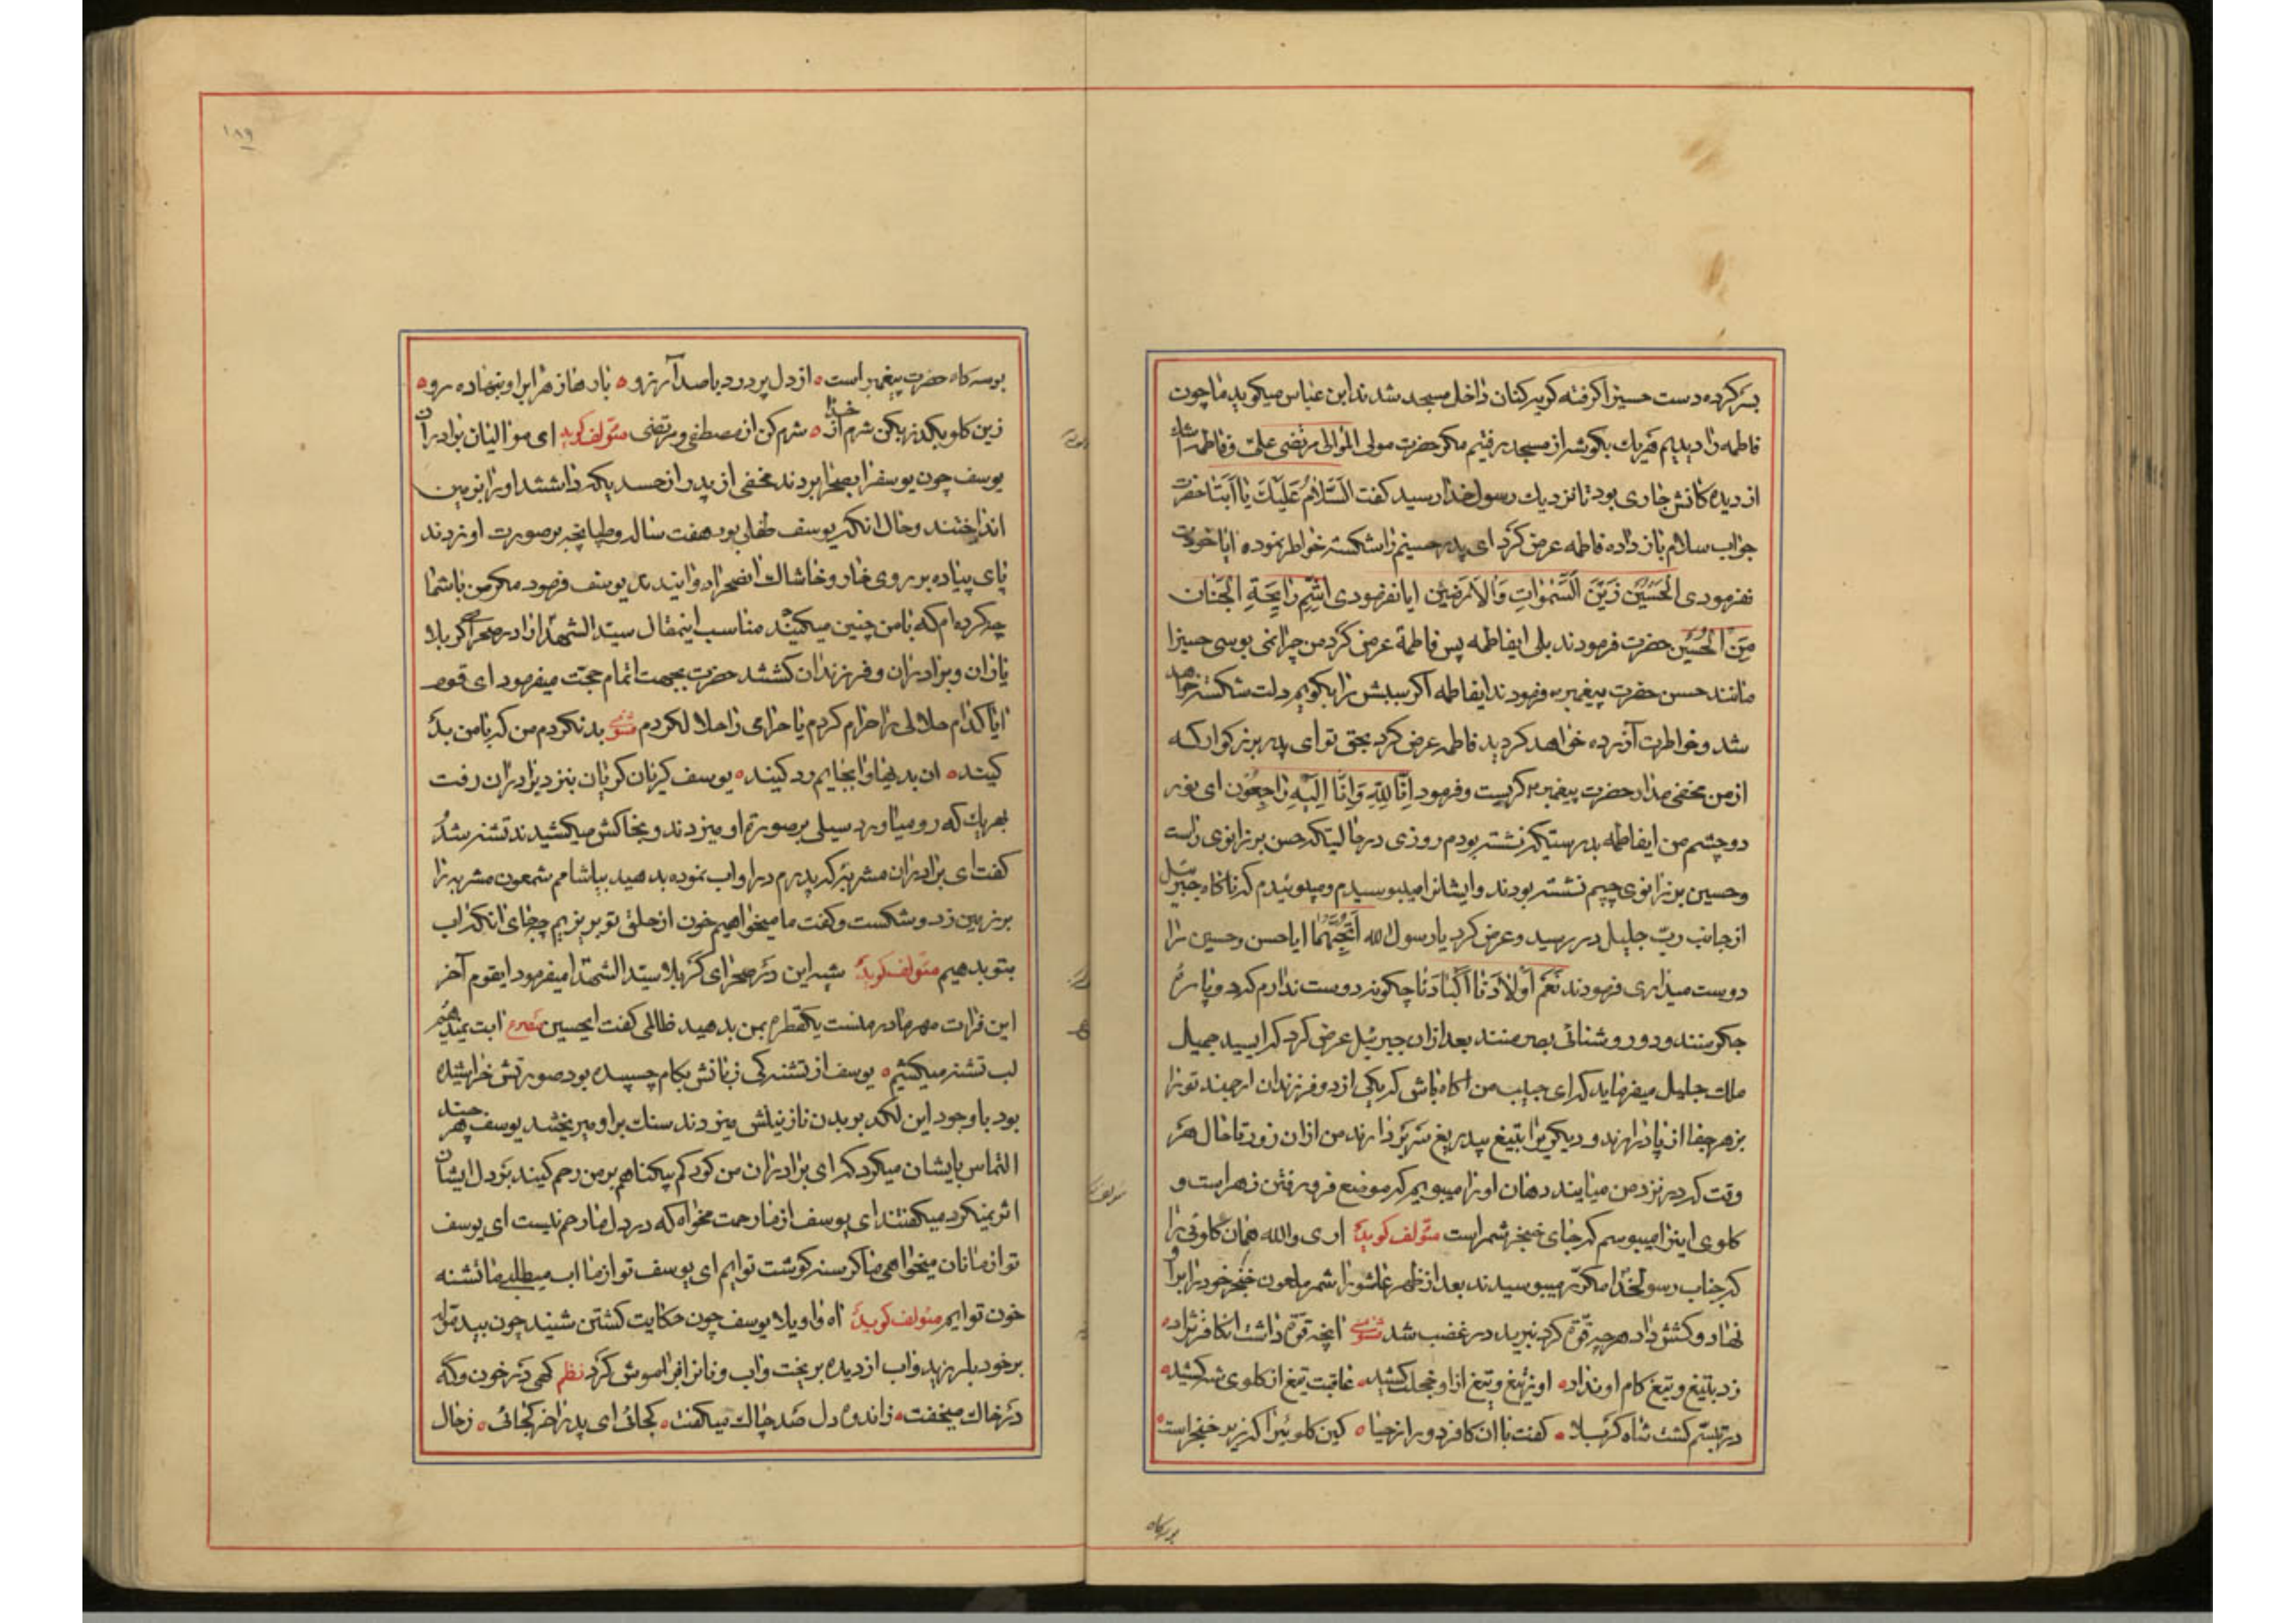 بسر کرده دست حسینرا کرفته کریه کنان داخل مسجد شدند ابن عباس میکوید ما چون
فاطمه را دیدیم هریك بکوشه از مسجد رفتیم مکر حضرت مولی الموالی مرتضی علی و فاطمه اشك
از دیده کانش جاری بود تا نزدیك رسول خدا رسید کفت السَّلامُ عَلَیْكَ یا اَبَتا حضرت
جواب سلام باز داده فاطمه عرض کرد ای پدر حسینم را شکسته خواطر نموده ایا خودت
نفرمودی اَلْحُسَیْنُ زَیْنُ السَّمٰواتِ وَالْاَرَضینَ ایا نفرمودی اَشُمُّ رایِحَةِ الْجَنان
مِنَ الْحُسَیْنِ حضرت فرمودند بلی ایفاطمه پس فاطمه عرض کرد من چرا نمی بوسی حسینرا
مانند حسن حضرت پیغمبر فرمودند ایفاطمه اکر سببش را بکویم دلت شکسته خواهد
شد و خواطرت آزرده خواهد کردید فاطمه عرض کرد بحق تو ای پدر بزرکوار که
از من مخفی مدار حضرت پیغمبر کریست و فرمود اِنَّا لِلّٰهِ وَاِنَّا اِلَیْهِ راجِعُون ای نور
دو چشم من ایفاطمه بدرستیکه نشسته بودم روزی در حالتیکه حسن بر زانوی راست
و حسین بر زانوی چپم نشسته بودند و ایشانرا میبوسیدم و میبوئیدم که ناکاه جبرئیل
از جانب ربّ جلیل در رسید و عرض کرد یا رسول الله اَتُحِبُّهُما ایا حسن و حسین را
دوست میداری فرمودند نَعَمْ اَوْلادُنا اَکْبادُنا چکونه دوست ندارم که دو پاره
جکر منند و دو روشنائی بصر منند بعد ازان جبرئیل عرض کرد که ای سید جمیل
ملك جلیل میفرماید که ای حبیب من اکاه باش که یکی از دو فرزندان ارجمند تو را
بزهر جفا از پا درارند و دیکریرا بتیغ بیدریغ سر بردارند من ازان زود تا حال هر
وقت که در نزد من میایند دهان او را میبویم که موضع فرو رفتن زهر است و
کلوی اینرا میبوسم که جای خنجر شمر است مؤلف کوید اری والله همان کلوئی را
که جناب رسولخدا مکرّر میبوسیدند بعد از ظهر عاشورا شمر ملعون خنجر خود را بر او
نهاد و کشش داد هرچه قوّة کرد نبرید در غضب شد مثنوی انچه قوّة داشت انکافر نژاد
زد بتیغ و تیغ کام او نداد او نهیغ و تیغ از او خجلت کشید عاقبت تیغ از کلوی شه کشید
در تبسّم کشت شاه کربلا کفت با ان کافر دور از حیا کین کلوئیرا که زیر خنجر است
بوسه کاه
بوسه کاه حضرت پیغمبر است از دل پر درد با صد آرزو بارها زهرا براو بنهاده رو
زین کلو بکذر بکن شرم از خدا شرم کن از مصطفی و مرتضی مؤلف کوید ای موالیان برادران
یوسف چون یوسفرا بصحرا بردند مخفی از پدر از حسد یکه داشتند او را بزمین
انداختند و حال انکه یوسف طفلی بود هفت ساله و طپانچه بر صورت او زدند
پای پیاده بر روی خار و خاشاك انصحرا دوانیدند یوسف فرمود مکر من با شما
چه کرده ام که با من چنین میکنید مناسب اینمقال سیّد الشهدا را در صحرای کربلا
یاران و برادران و فرزندان کشتند حضرت بجهت اتمام حجت میفرمود ای قوم
ایا کدام حلالی را حرام کردم یا حرامی را حلال کردم مثنوی بد نکردم من که با من بد
کنید ان بدیها را بجایم رد کنید یوسف کریان کریان بنزد برادران رفت
بهریك که رو میاورد سیلی بر صورة او میزدند و بخاکش میکشیدند تشنه شد
کفت ای برادران مشربه که پدرم در او اب نموده بدهید بیاشامم شمعون مشربه را
بر زمین زد و شکست و کفت ما میخواهیم خون از حلق تو بریزیم چه جای انکه اب
بتو بدهیم مؤلف کوید شبه این در صحرای کربلا سیّد الشهدا میفرمود ایقوم آخر
این فرات مهر مادر منست یکقطره بمن بدهید ظالمی کفت ایحسین مصرع ابت نمیدهیم
لب تشنه میکشیم یوسف از تشنه کی زبانش بکام چسپیده بود صورتش خراشیده
بود با وجود این لکد بر بدن نازنینش میزدند سنك براو میریختند یوسف هر چند
التماس بایشان میکرد که ای برادران من کودکم بیکناهم بر من رحم کنید بر دل ایشان
اثر نمیکرد میکفتند ای یوسف از ما رحمت مخواه که در دل ما رحم نیست ای یوسف
تو از ما نان میخواهی ما کرسنه کوشت توایم ای یوسف تو از ما اب میطلبی ما تشنه
خون توایم مؤلف کوید اه واویلا یوسف چون حکایت کشتن شنید چون بید
بر خود بلرزید و اب از دیده بریخت و اب و نانرا فراموش کرد نظم کهی در خون و که
در خاك میخفت ز اندوه دل صد چاك میکفت کجائی ای پدر اخر کجائی ز حال
۱۸۹